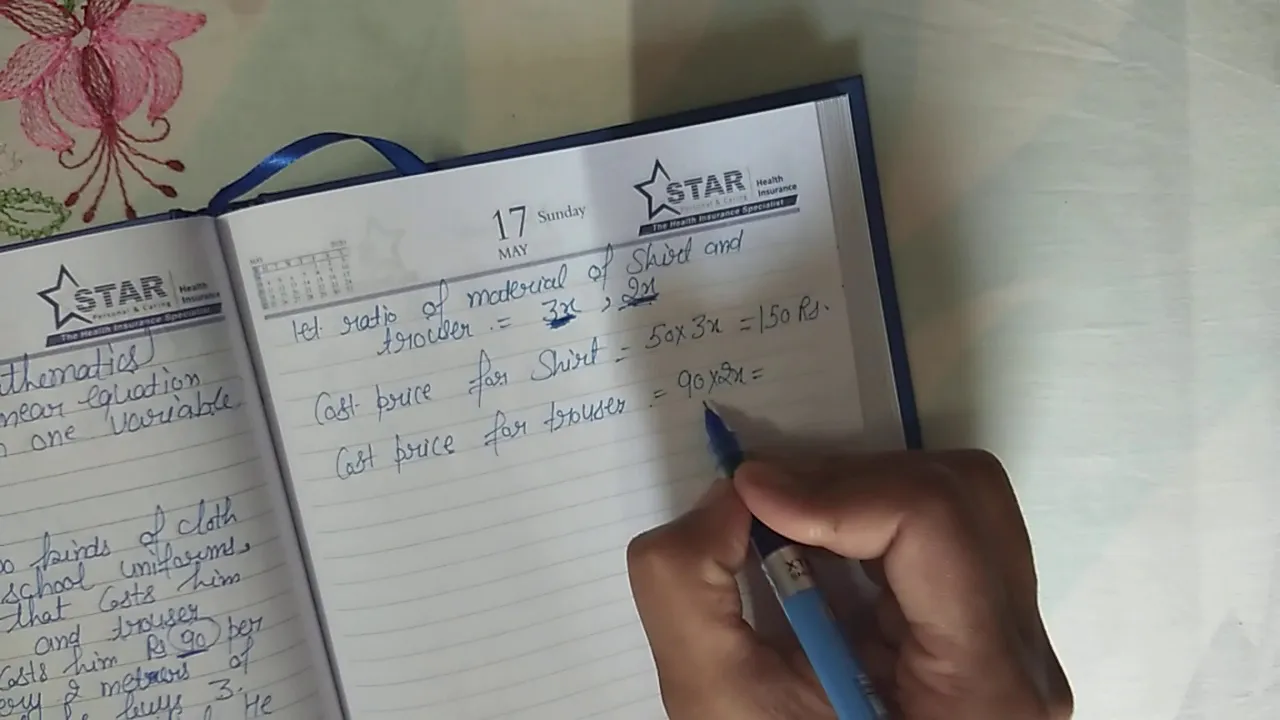 STAR Health
Personal & Caring Insurance
The Health Insurance Specialist
thematics)
near equation
one variable
kinds of cloth
school uniforms,
that Costs him
and trouser
Costs him Rs 90 per
2 metners of
buys 3.
He
17 Sunday
MAY
STAR Health
Personal & Caring Insurance
The Health Insurance Specialist
let ratio of material of Shirt and
trouser = 3x, 2x
Cost price for Shirt = 50×3x = 150 Rs.
Cost price for trouser = 90×2x =